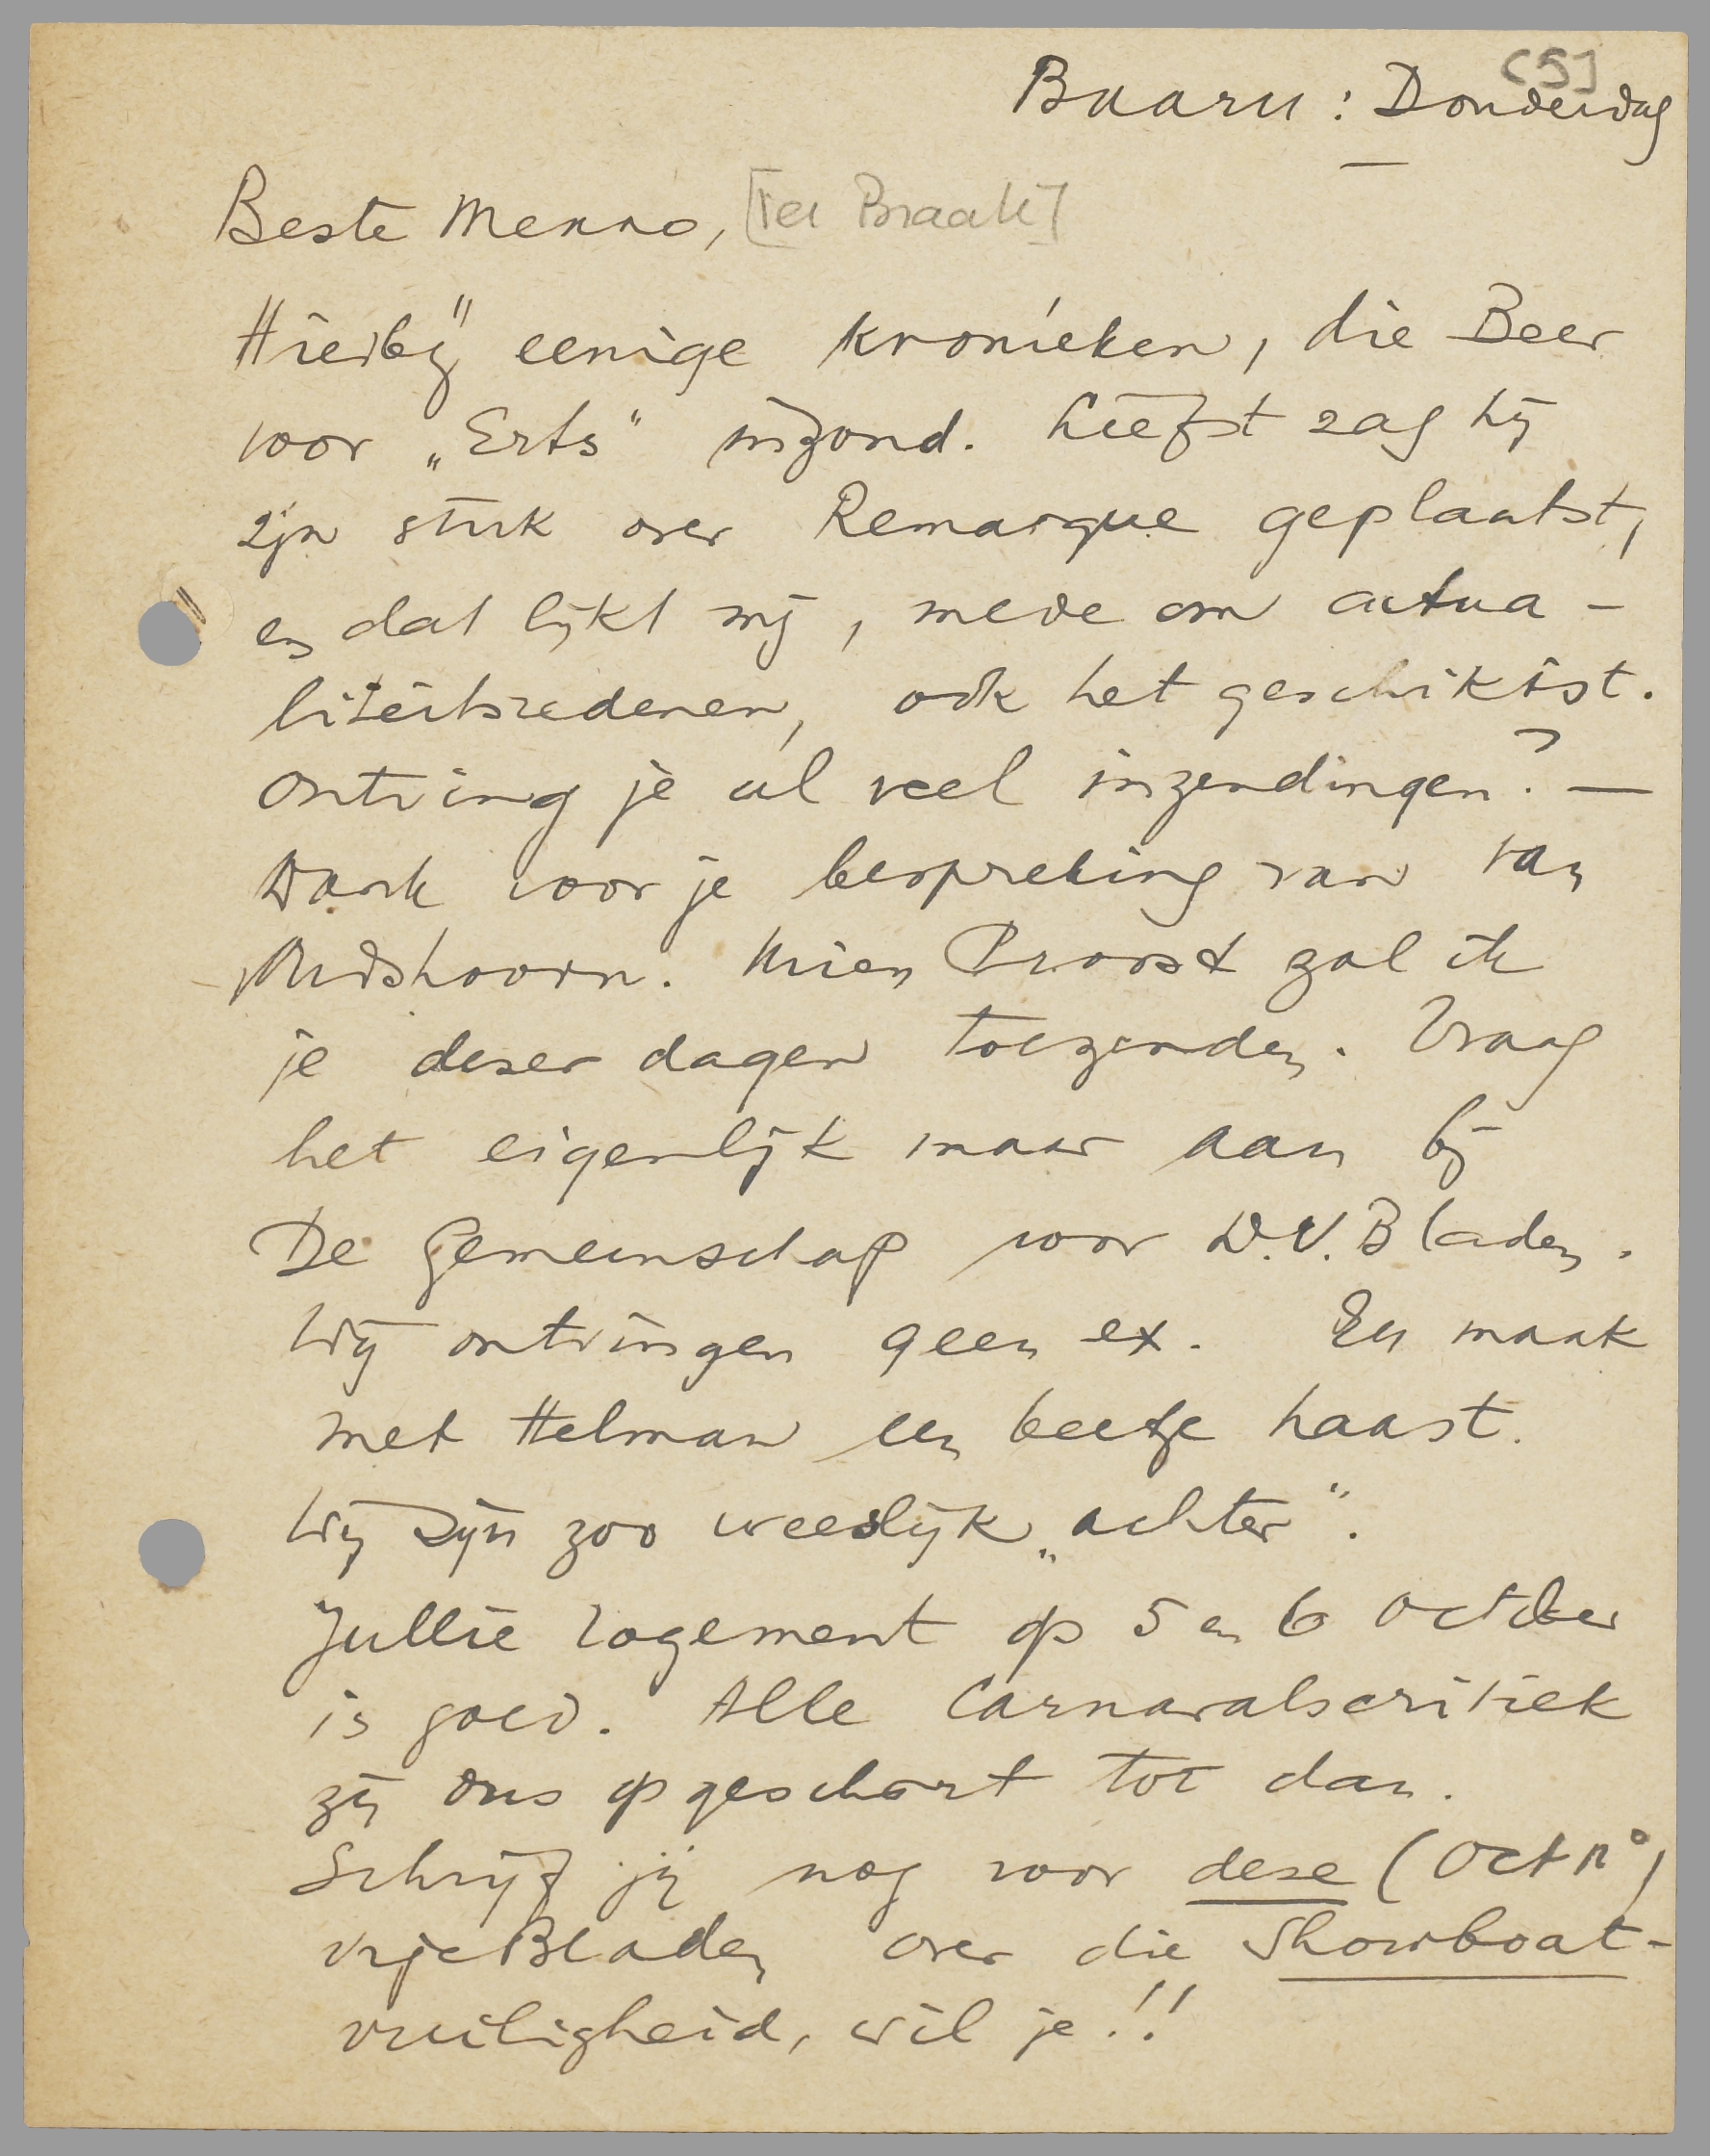 [5]
Baarn: Donderdag
Beste Menno, [ter Braak]
Hierbij eenige kronieken, die Beer
voor „Erts" inzond. Liefst zag hij
zijn stuk over Remarque geplaatst,
en dat lijkt mij, mede om actua-
liteitsredenen, ook het geschiktst.
Ontving je al veel inzendingen? —
Dank voor je bespreking van van
Oudshoorn. Mien Proost zal ik
je dezer dagen toezenden. Vraag
het eigenlijk maar aan bij
De Gemeenschap voor D.V.Bladen.
Wij ontvingen geen ex. En maak
met Helman een beetje haast.
Wij zijn zoo vreeslijk „achter".
Jullie logement op 5 en 6 October
is goed. Alle Carnavalscritiek
zij ons opgeschort tot dan.
Schrijf jij nog voor deze (Oct n°)
vrije Bladen over die Showboat-
vuiligheid, wil je!!